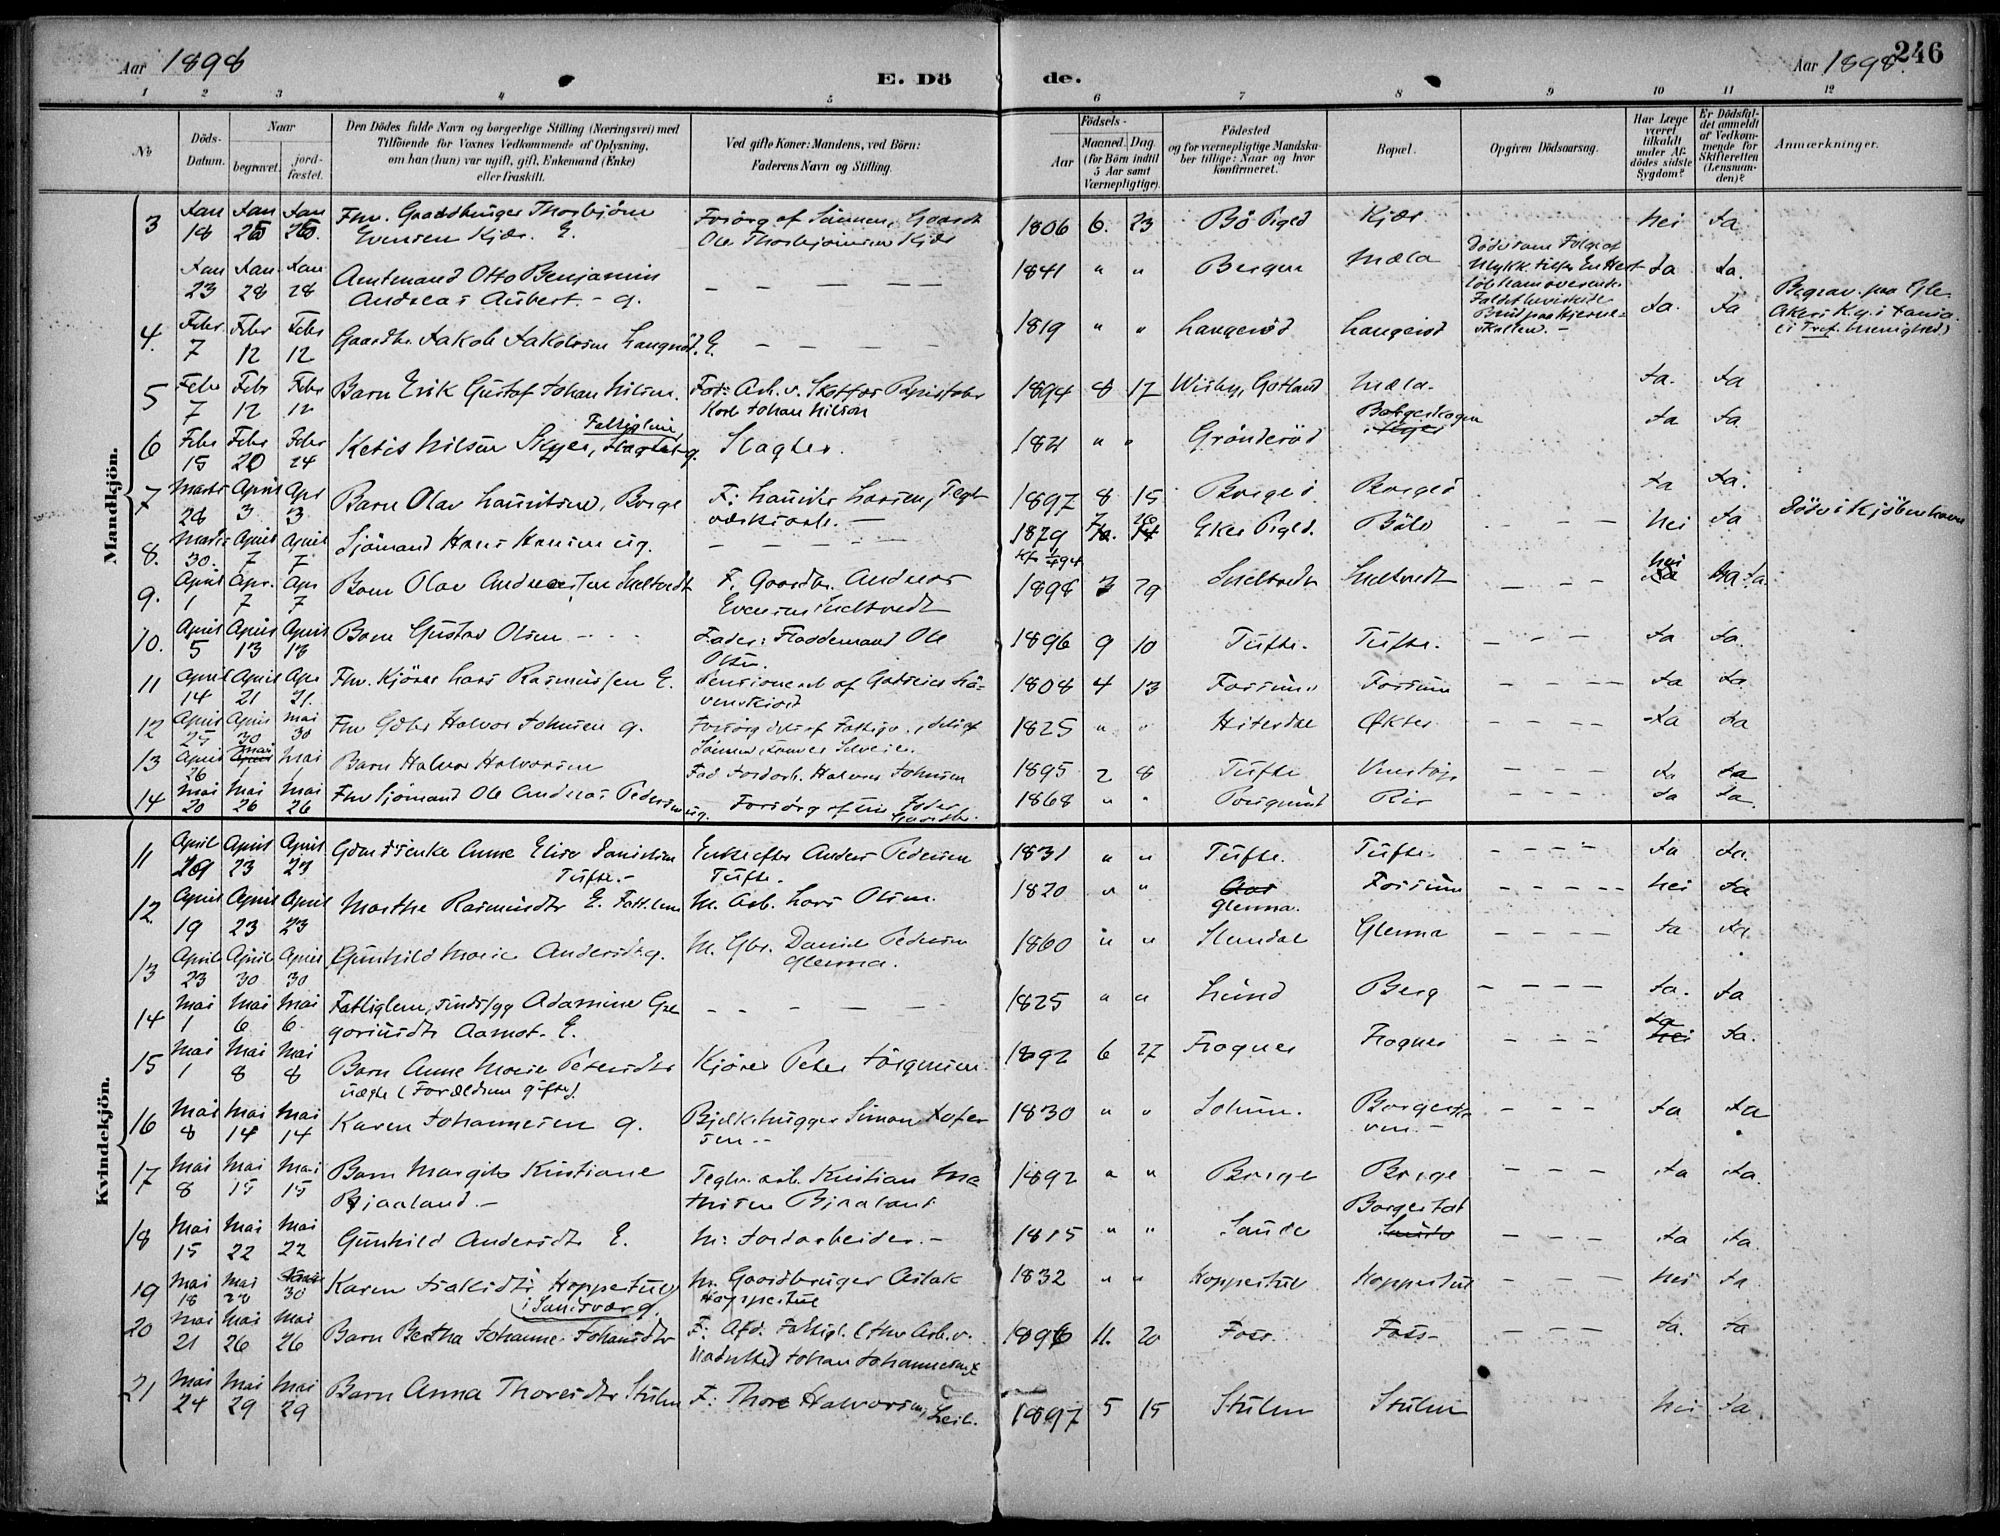 Aar 1898
E. Döde.
Aar 1898.
246
1 2 3 4 5 6 7 8 9 10 11 12
No
Döds-Datum.
Naar
begravet.
jord-fæstet.
Den Dödes fulde Navn og borgerlige Stilling (Næringsvei) med
Tilföiende for Voxnes Vedkommende af Oplysning,
om han (hun) var ugift, gift, Enkemand (Enke)
eller fraskilt.
Ved gifte Koner: Mandens, ved Börn:
Faderens Navn og Stilling.
Födsels-
Aar
Maaned. Dag
(for Börn indtil
5 Aar samt
Værnepligtige).
Födested
og for værnepligtige Mandska-
ber tillige: Naar og hvor
konfirmeret.
Bopæl.
Opgiven Dödsaarsag.
Har Læge
været
tilkaldt
under Af-
dödes sidste
Sygdom?
Er Dödsfal-
det anmeldt
af Vedkom-
mende for
Skifteretten
(Lensman-
den)?
Anmærkninger.
Mandkjön.
3 Jan 18 Jan 25 Jan 25. Fhv. Gaardbruger Thorbjörn Evensen Kjær. E. Forsörg af Sönnen, Gaardb Ole Thorbjörnsen Kjær 1806 6. 23 Bö Pigd Kjær Nei Ja
Jan 23 Jan 28 Jan 28 Amtmand Otto Benjamin Andreas Aubert. - g. 1841 " " Bergen Mæla Ja Ja.
Begrav. paa Gle Akers Kg. i Kania. (i Tref. Menighed)
4. Febr. 7 Febr 12 Febr 12 Gaardbr. Jakob Jakobsen Langeröd. E. 1819 " " Langeröd Langeröd Ja. Ja
5 Febr 7 Febr 12 Febr 12 Barn Erik Gustaf Johan Nilsen. Fad: Arb. v. Skotfos Papirfabr Karl Johan Nilson 1894 8 17 Wisby, Gotland Mæla. Ja. Ja
6 Febr 15 Febr 20 Febr 24 Ketil Nilsen Slagter g. Slagter. 1821 " " Grönderöd Ja Ja
7 Marts 28 April 3 Apr 3 Barn Olav Lauritsen, Borge F: Laurits Larsen, Tegl værksarb. 1897 8 15 Borge Borge Ja Ja.
8. Marts 30. April 7 April 7 Sjömand Hans Hansen ug. 1879 Eker Pigd. Böle nei Ja Död i Kjöbenhavn
9. April 1 Apr. 7 Apr 7 Barn Olav Andreassen Sneltvedt F. Gaardbr. Andreas Evensen Sneltvedt 1898 3 29 Sneltvedt Sneltvedt nei Ja
10. April 5 April 13 April 13 Barn Gustav Olsen Fader: Flaademand Ole Olsen. 1896 9 10 Tufte. Tufte. Ja Ja.
11 April 14 April 21 Apr 21. Fhv. Kjörer Lars Rasmussen E. 1808 4 13 Fossum Fossum Ja Ja
12 April 25 April 30 Mai 30 Fhv Gdbr Halvor Johnsen g. 1825 " " Hiterdal Økter Ja Ja
13 April 26 Mai 1 Mai 1 Barn Halvor Halvorsen Fad Jordarb. Halvor Johnsen 1895 2 8 Tufte Ja Ja
14 Mai 20 Mai 26 Mai 26 Fhv Sjömand Ole Andreas Pedersen ug. Forsörg af sin Fader Gaardbr. 1868 " " Porsgrund Ris Ja Ja.
Kvindekjön.
11 April 19 April 23 April 23 Gaardenke Anne Elise Danielsen Tufte.- Enke efter Anders Pedersen Tufte. 1831 " " Tufte. Tufte. Ja Ja.
12. April 19 April 23 April 23 Marthe Rasmusdtr E. Fattlem M. Arb. Lars Olsen. 1820 " " Glenna. Fossum Nei Ja
13 April 23 April 30 April 30 Gunhild Marie Andersdtr g. M. Gbr. Daniel Pedersen Glenna. 1860 " " Slemdal Glenna Ja Ja
14 Mai 1 Mai 6 Mai 6. Fattiglem, sindssyg Adamine Gregoriusdtr Aamot. E. 1825 " " Lund Berg Ja. Ja
15 Mai 1 Mai 8 Mai 8 Barn Anne Marie Petersdtr uægte (Forældrene gifte). Kjörer Peter Jörgensen 1892 6 27 Frogner Frogner Ja Ja.
16 Mai 8 Mai 14 Mai 14 Karen Johannesen g. Bjelkehugger Simon Jofersen 1830 " " Solum. Borgestadven. Ja Ja
17 Mai 8 Mai 15 Mai 15 Barn Margit Kristiane Bjaaland - Teglv. arb. Kristian Mathisen Bjaaland 1892 " " Borge Borge Ja Ja.
18 Mai 15 Mai 22 Mai 22 Gunhild Andersdtr E. M: Jordarbeider. 1815 " " Sande Borgestad Ja Ja.
19 Mai 18 Mai Mai 30 Karen Isaksdtr Hoppestul (i Sandsvær g. M. Gaardbruger Aslak Hoppestul 1832 " " Hoppestul Hoppestul nei Ja
20 Mai 21 Mai 26 Mai 26 Barn Bertha Johanne Johansdtr F: Afd. Fattigl. (fhv Arb. v. Johan Johannesen 1896 11. 20 Foss Foss Ja. Ja
21 Mai 24 Mai 29 Mai 29 Barn Anna Thoresdtr Stulen F: Thore Halvorsen, Leil. 1897 5 15 Stulen Stulen Nei Ja